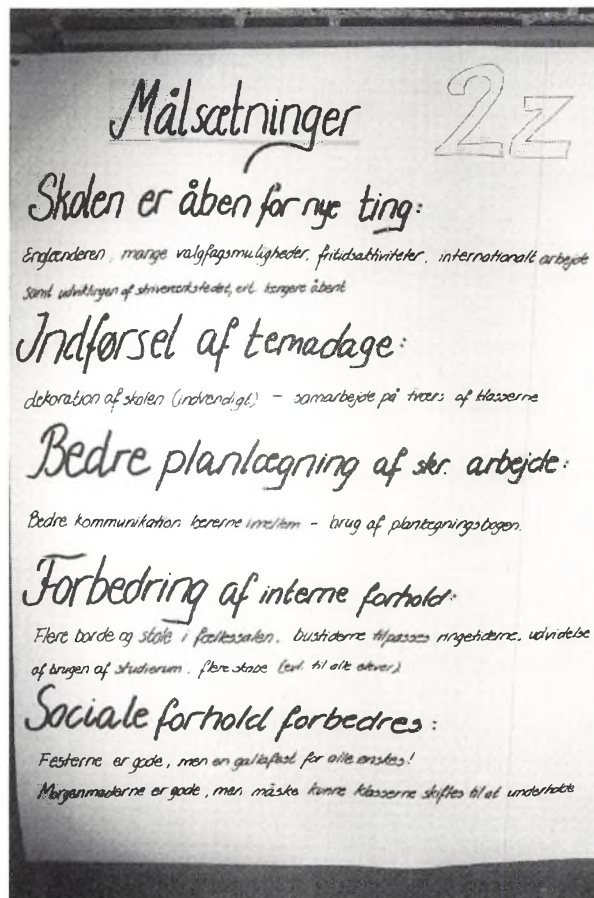 Målsætninger
2z
Skolen er åben for nye ting:
Englænderen, mange valgfagsmuligheder, fritidsaktiviteter, internationalt arbejde
samt udviklingen af skriveværkstedet, evt. længere åbent
Indførsel af temadage:
dekoration af skolen (indvendigt) - samarbejde på tværs af klasserne
Bedre planlægning af skr. arbejde:
Bedre kommunikation lærerne imellem - brug af planlægningsbogen.
Forbedring af interne forhold:
Flere borde og stole i fællessalen, bustiderne tilpasses ringetiderne, udvidelse
af brugen af studierum, flere skabe (evt. til alle elever)
Sociale forhold forbedres:
Festerne er gode, men en gallafest for alle ønskes!
Morgenmøderne er gode, men måske kunne klasserne skiftes til at underholde